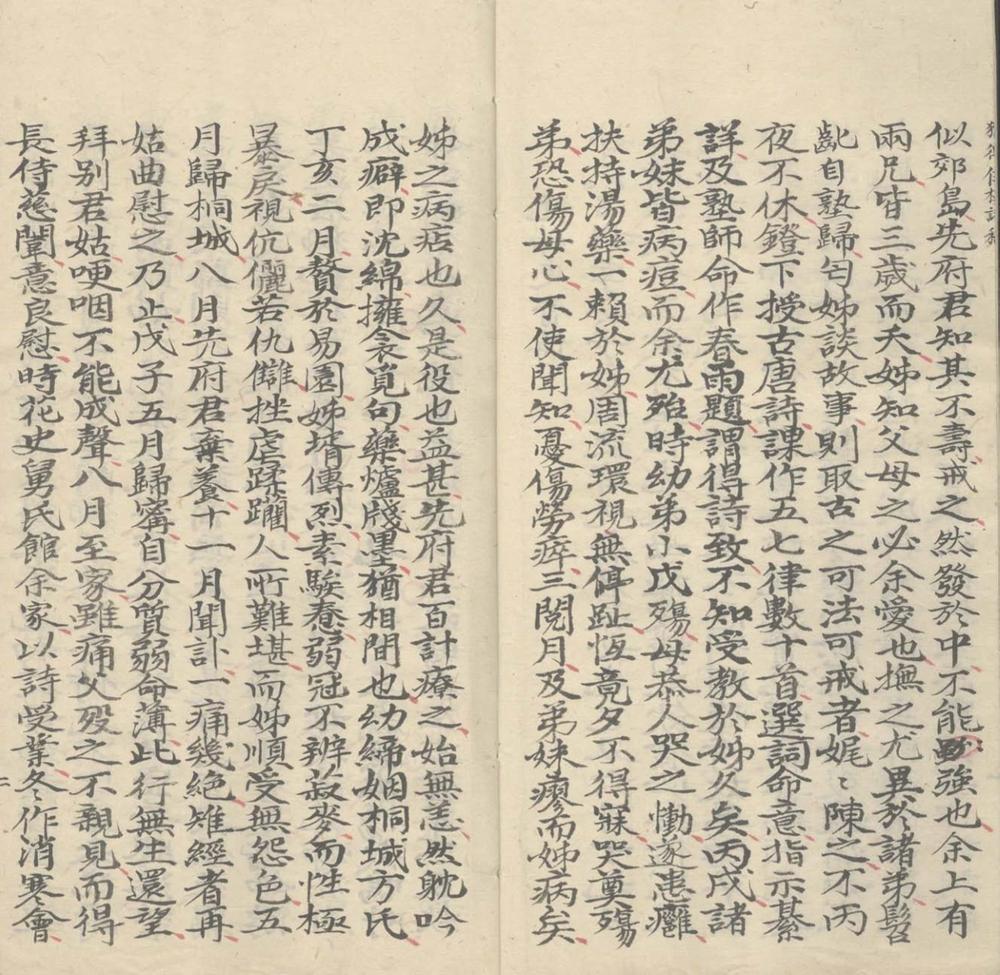 似郊島先府君知其不壽戒之然發於中不能勉強也余上有
兩兄皆三歲而夭姊知父母之必余愛也撫之尤異於諸弟髫
齔自塾歸匄姊談故事則取古之可法可戒者娓〻陳之不丙
夜不休鐙下授古唐詩課作五七律數十首選詞命意指示綦
詳及塾師命作春雨題謂得詩致不知受教於姊久矣丙戌諸
弟妹皆病痘而余尤殆時幼弟小戊殤母恭人哭之慟遂患癰
扶持湯藥一賴於姊周流環視無停趾恆竟夕不得寐哭奠殤
弟恐傷母心不使聞知憂傷勞瘁三閱月及弟妹瘳而姊病矣
姊之病痁也久是役也益甚先府君百計療之始無恙然躭吟
成癖即沈綿擁衾覓句藥爐牋墨猶相間也幼締姻桐城方氏
丁亥二月贅於易園姊壻傳烈素騃惷弱冠不辨菽麥而性極
暴戾視伉儷若仇讎挫虐蹂躪人所難堪而姊順受無怨色五
月歸桐城八月先府君棄養十一月聞訃一痛幾絕雉經者再
姑曲慰之乃止戊子五月歸甯自分質弱命薄此行無生還望
拜別君姑哽咽不能成聲八月至家雖痛父歿之不親見而得
長侍慈闈意良慰時花史舅氏館余家以詩受業冬〻作消寒會